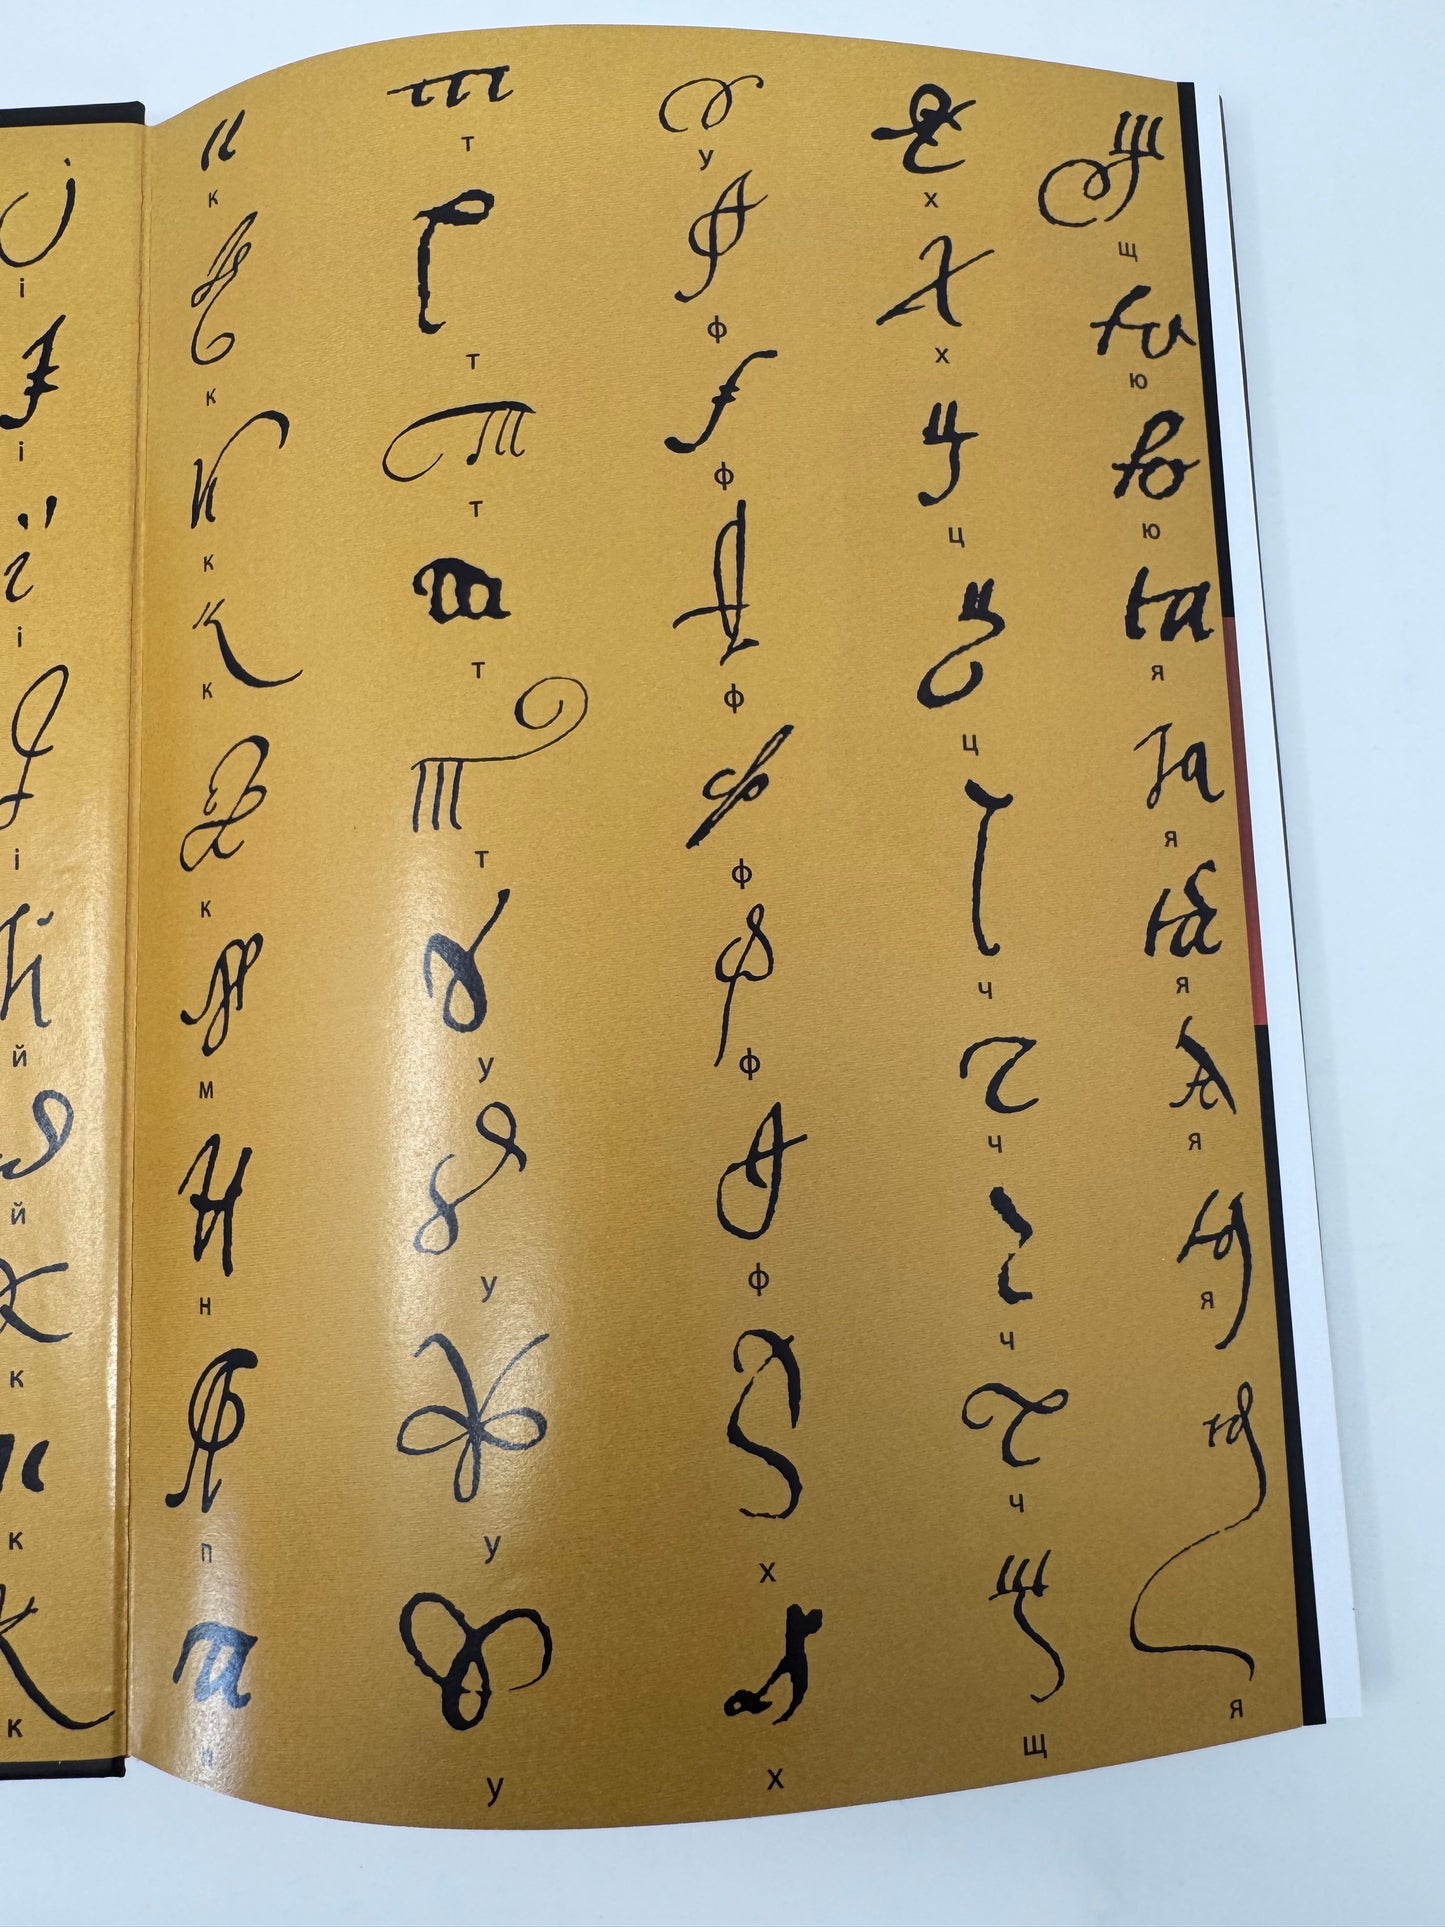 і
і
і
і
й
й
к
к
к
к
к
к
к
к
м
н
п
п
т
т
т
т
т
у
у
у
у
у
ф
ф
ф
ф
ф
ф
х
х
х
х
ц
ц
ч
ч
ч
ч
щ
щ
ю
ю
я
я
я
я
я
я